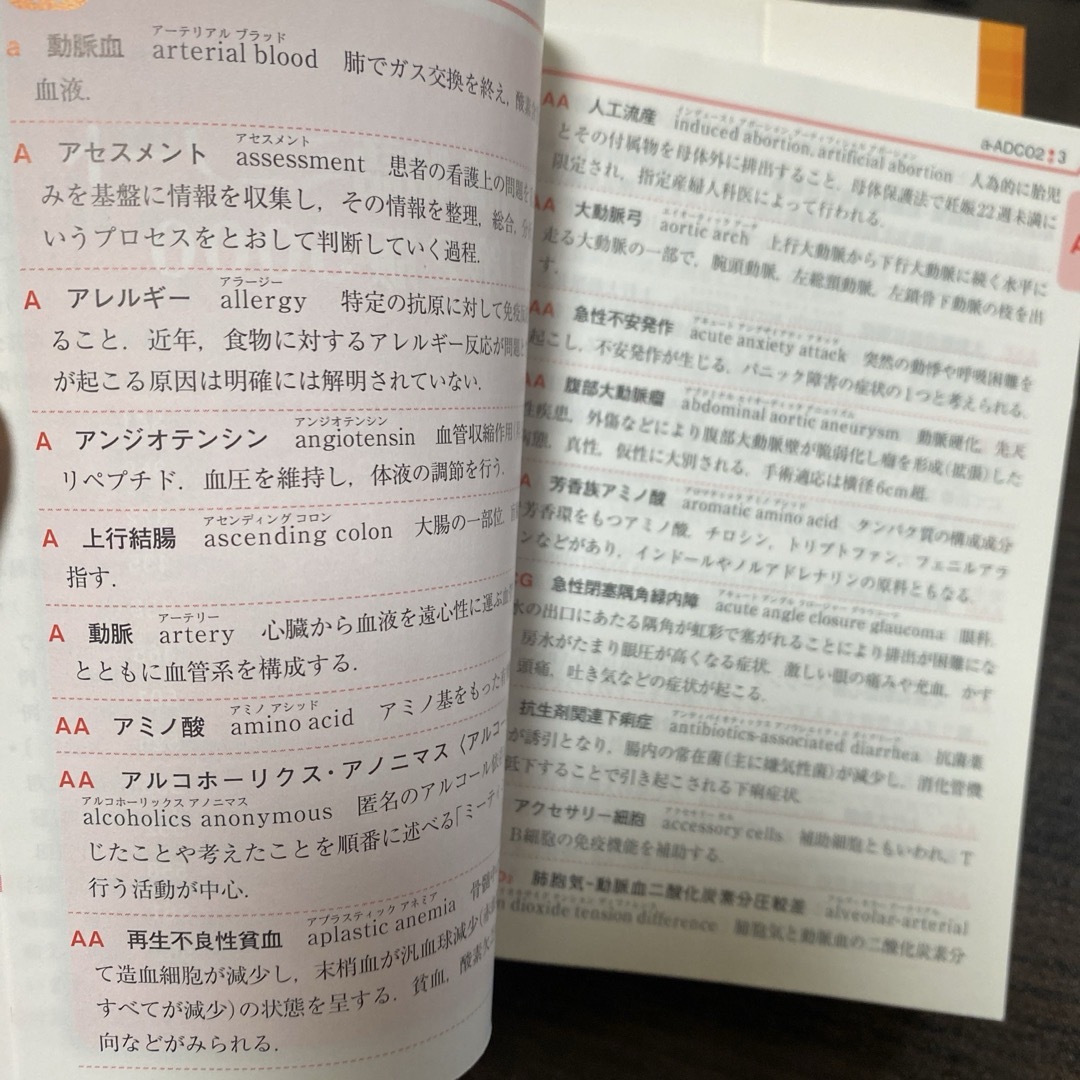 アーテリアル ブラッド
a 動脈血 arterial blood 肺でガス交換を終え，酸素
血液．
アセスメント
A アセスメント assessment 患者の看護上の問題
みを基盤に情報を収集し，その情報を整理，総合，分
いうプロセスをとおして判断していく過程．
アラージー
A アレルギー allergy 特定の抗原に対して免疫
ること．近年，食物に対するアレルギー反応が問題
が起こる原因は明確には解明されていない．
アンジオテンシン
A アンジオテンシン angiotensin 血管収縮作用
リペプチド．血圧を維持し，体液の調節を行う．
アセンディング コロン
A 上行結腸 ascending colon 大腸の一部位．
指す．
アーテリー
A 動脈 artery 心臓から血液を遠心性に運ぶ
とともに血管系を構成する．
アミノ アシッド
AA アミノ酸 amino acid アミノ基をもった
AA アルコホーリクス・アノニマス〈アルコー
アルコホーリックス アノニマス
alcoholics anonymous 匿名のアルコール依
じたことや考えたことを順番に述べる「ミーテ
行う活動が中心．
アプラスティック アネミア
AA 再生不良性貧血 aplastic anemia 骨髄
て造血細胞が減少し，末梢血が汎血球減少(
すべてが減少)の状態を呈する．貧血，酸素欠
向などがみられる．
a-ADCO2 3
インデュースト アボーション，アーティフィシャル アボーション
AA 人工流産 induced abortion, artificial abortion 人為的に胎児
とその付属物を母体外に排出すること．母体保護法で妊娠22週未満に
限定され，指定産婦人科医によって行われる．
エイオーティック アーチ
AA 大動脈弓 aortic arch 上行大動脈から下行大動脈に続く水平に
走る大動脈の一部で，腕頭動脈，左総頸動脈，左鎖骨下動脈の枝を出
す．
アキュート アングザイアティ アタック
AA 急性不安発作 acute anxiety attack 突然の動悸や呼吸困難を
起こし，不安発作が生じる．パニック障害の症状の1つと考えられる．
アブドミナル エイオーティック アニュリズム
AA 腹部大動脈瘤 abdominal aortic aneurysm 動脈硬化，先天
性疾患，外傷などにより腹部大動脈壁が脆弱化し瘤を形成(拡張)した
病態．真性，仮性に大別される．手術適応は横径6cm超．
アロマティック アミノ アシッド
A 芳香族アミノ酸 aromatic amino acid タンパク質の構成成分
芳香環をもつアミノ酸．チロシン，トリプトファン，フェニルアラ
ンなどがあり，インドールやノルアドレナリンの原料ともなる．
アキュート アングル クロージャー グラウコーマ
CG 急性閉塞隅角緑内障 acute angle closure glaucoma 眼科．
水の出口にあたる隅角が虹彩で塞がれることにより排出が困難にな
房水がたまり眼圧が高くなる症状．激しい眼の痛みや充血，かす
頭痛，吐き気などの症状が起こる．
抗生剤関連下痢症 antibiotics-associated diarrhea 抗菌薬
が誘引となり，腸内の常在菌(主に嫌気性菌)が減少し，消化管機
低下することで引き起こされる下痢症状．
アクセサリー セル
アクセサリー細胞 accessory cells 補助細胞ともいわれ，T
B細胞の免疫機能を補助する．
肺胞気-動脈血二酸化炭素分圧較差 alveolar-arterial
n dioxide tension difference 肺胞気と動脈血の二酸化炭素分